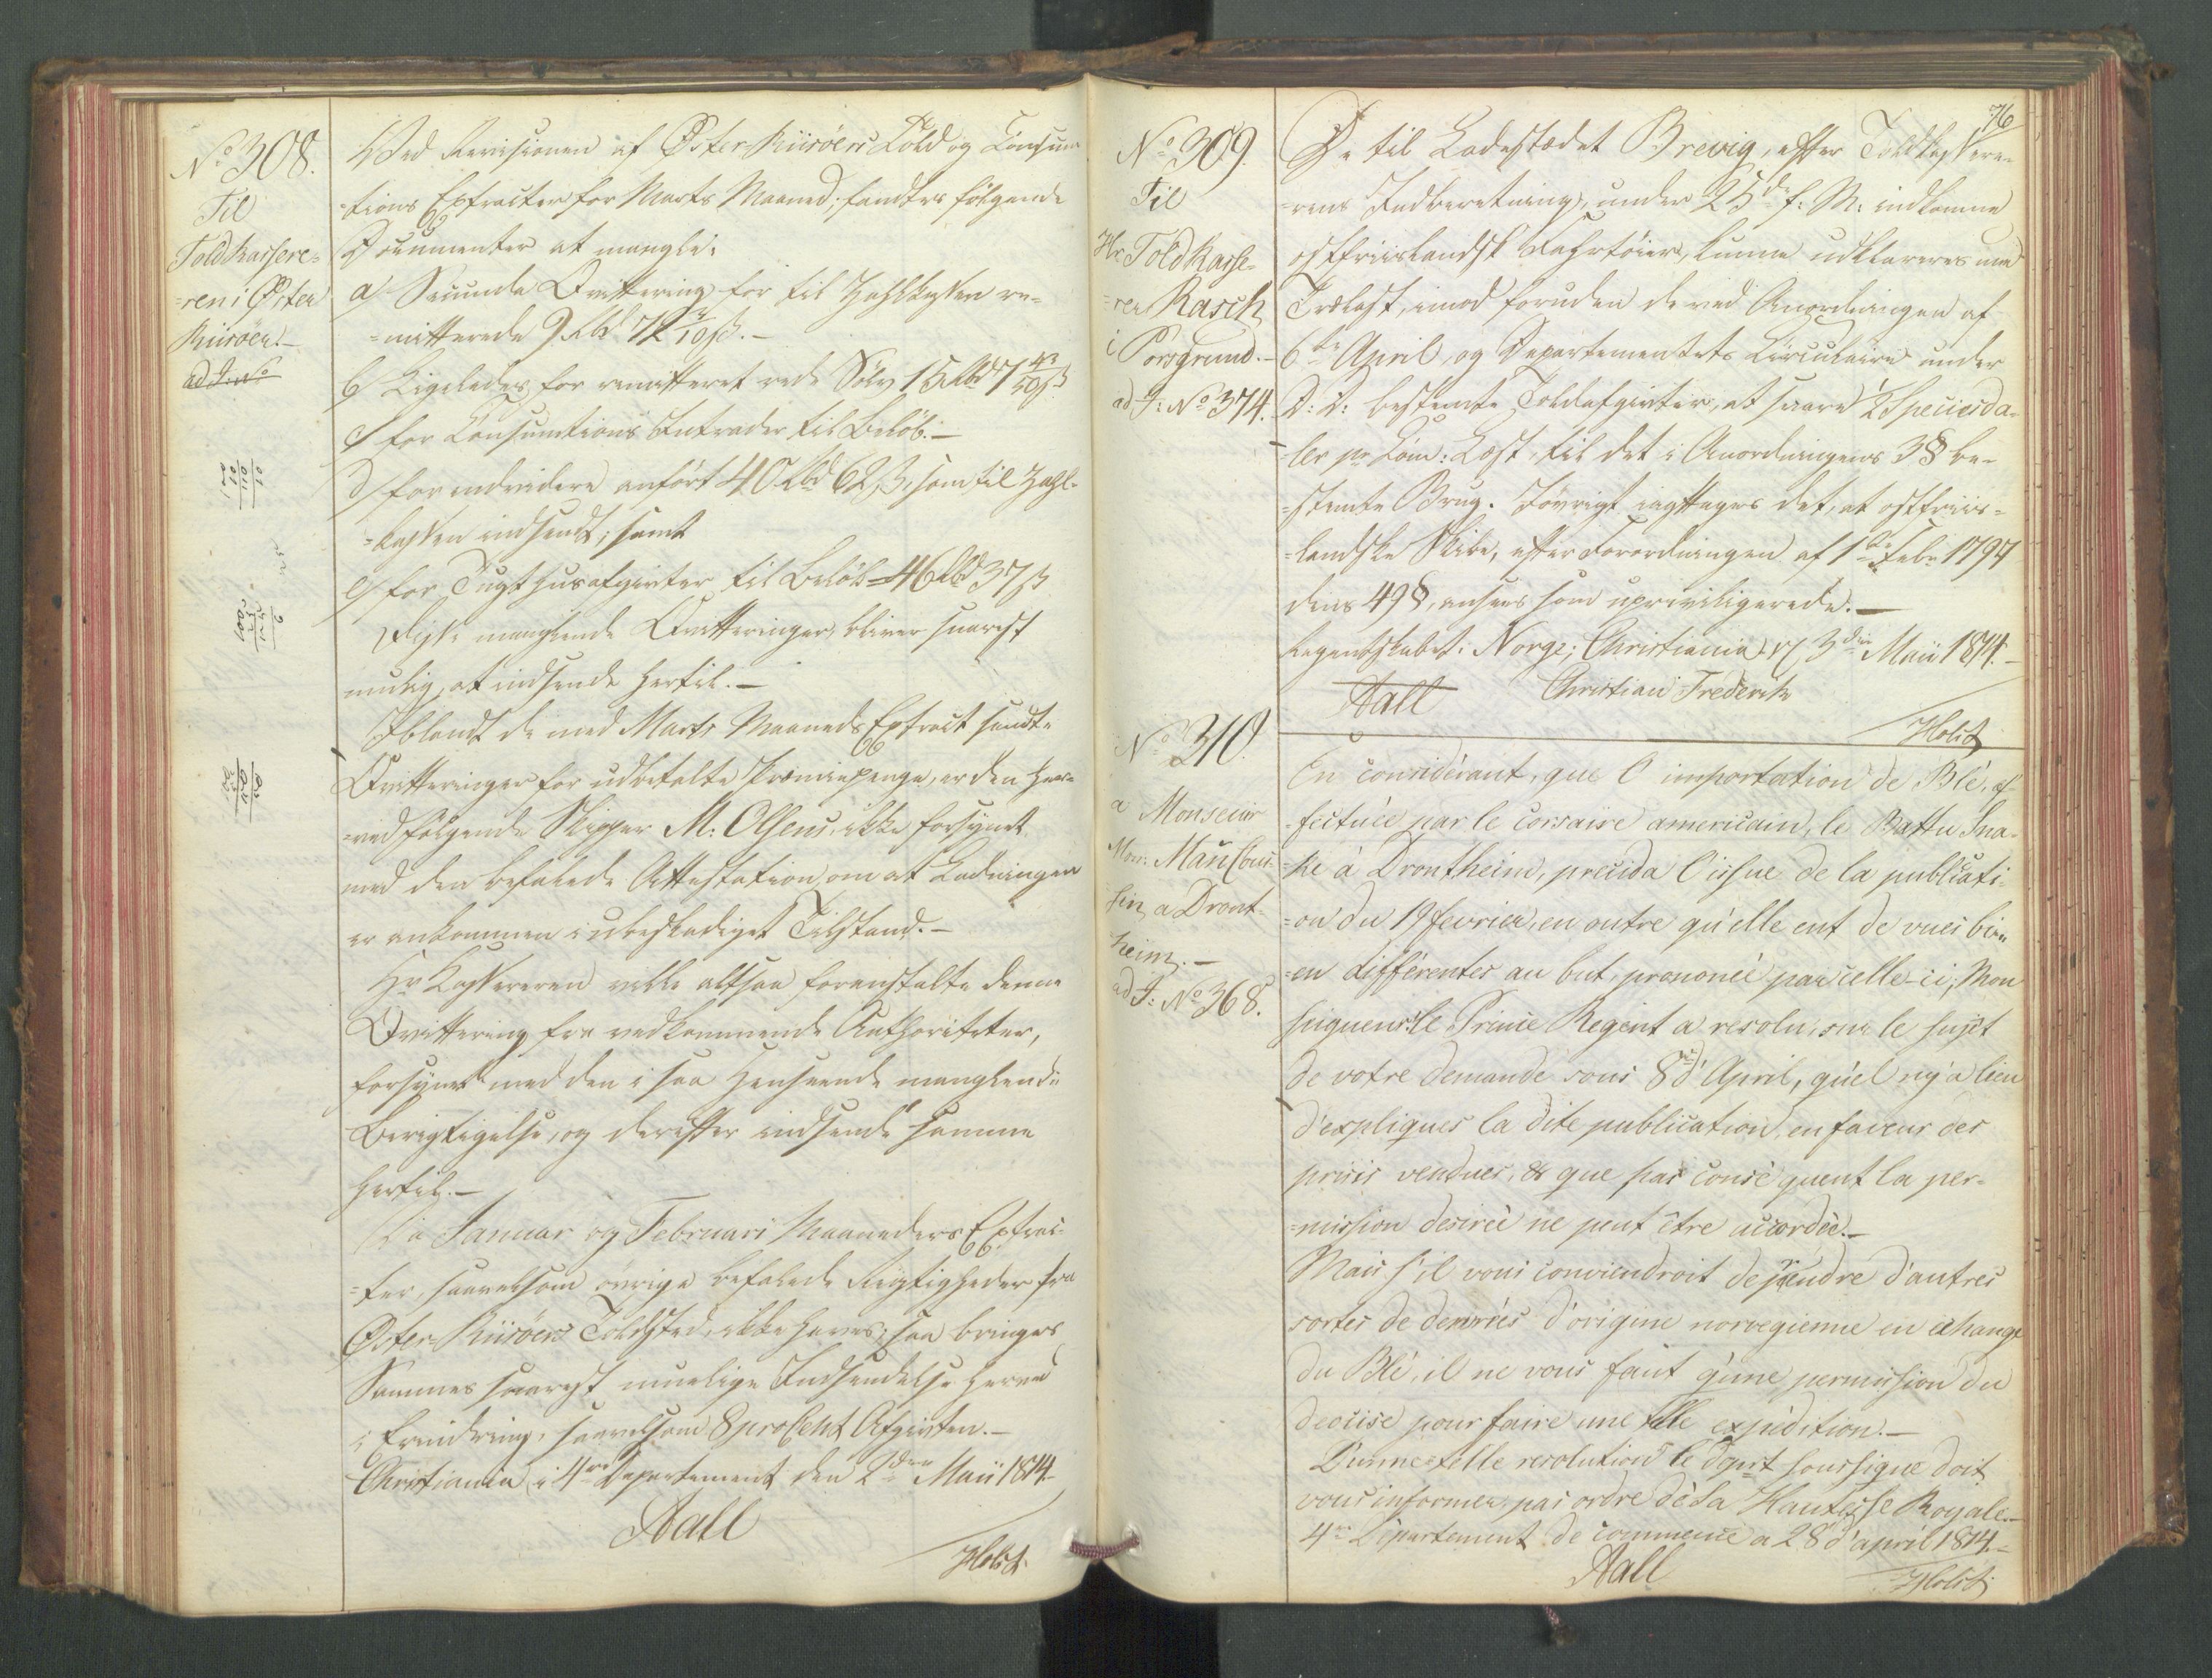 No 308.
Til
Toldkassere-
=ren i Øster
Riisöer.-
ad J: No
Ved Revisionen af Øster-Riisöers Told og Consum
=tions Extracter for Marts Maaned, fandtes fölgende
Documenter at mangle:
a) Secunda Qvittering for til Zahlkassen re-
=mitterede 9 Rbd 72
b) Ligeledes for remitteret rede Sölv 15 Rbd
c) for Consumtions Intrader til Belöb.-
d) for endvidere anfört 40 Rbd 62 ß, som til Zahl-
=kassen indsendt; samt
e) for Tugthusafgivter til Belöb 46 Rbd 37 ß
Disse manglende Qvitteringer, bliver snarest
mulig at indsende hertil.-
Iblandt de med Marts Maaneds Extract sendte
Qvitteringer for udbetalte Præmiepenge, er den her-
=ved fölgende Skipper M: Olsens, ikke forsynet
med den befalede Attestation om at Ladningen
er ankommen i ubeskadiget Tilstand.-
Hr Kassereren ville altsaa foranstalte denne
Qvittering fra vedkommende Authoriteter,
forsynet med den i saa Henseende manglende
Berigtigelse, og derefter indsende samme
hertil.-
Da Januar og Februari Maaneders Extrac-
=ter, saavelsom övrige befalede Rigtigheder fra
Öster-Riisöers Toldsted, ikke haves; saa bringes
Sammes snarest muelige Indsendelse herved
i Erindring, saavelsom 8 pro Cent Afgivten.-
Christiania i 4de Departement den 2den Maii 1814
Aall
Holst.
76
No 309.
Til
Hr Toldkasse-
=rer Rasch
i Porsgrund.-
ad J: No 374.
De til Ladestædet Brevig, efter Toldkassere-
=rens Indberetning, under 25de f: M: indkomne
ostfriislandsk Fahrtöier, kunne udklareres med
Trælast, imod foruden de ved Anordningen af
6te April, og Departementets Circulaire under
D: D: bestemte Toldafgivter, at svare 2 Speciesda-
=ler pr Com: Læst, til det i Anordningens 3 § be-
=stemte Brug. Iövrigt iagttages det, at ostfriis-
=landske Skibe, efter Forordningen af 1ste Febr 1797
dens 49 §, ansees som upriviligerede.-
Regentskabet i Norge; Christiania d 3die Maii 1814.-
Christian Frederik
Aall
Holst
No 310.
a Monseiur
Mon: Mau Cous-
sin, a Dront-
heim.-
ad J: No 368.
En considérant, que l'importation de Blé, ef-
=fectuée par le corsaire americain, le Rattu Sna-
=ke à Drontheim, preceda l'issue de la publicati-
=on du 19 fevrier, en outre qu'elle ent de vues bi-
=en différentes au but, prononcé par celle-ci; Mon
seigneur le Prince Regent a resolu, sur le sujet
de votre demande sous 8 d'April, qu'el n'y a lieu
d'expliques la dite publication, en faveur des
prises vendues, & que par conséquent la per-
=mission desirée ne peut être accordée.-
Mais s'il vous conviendroit de prendre d'autres
sortes de denrées d'origine norvegienne en echange
du Blé, il ne vous faut qu'une permission du
decise pour faire une telle expedition.-
D'une telle resolution le soussigne doit
vous informer, par ordre de Sa Hautesse Royale.-
4me Departement de commerce a 28 d'april 1814.-
Aall
Holst